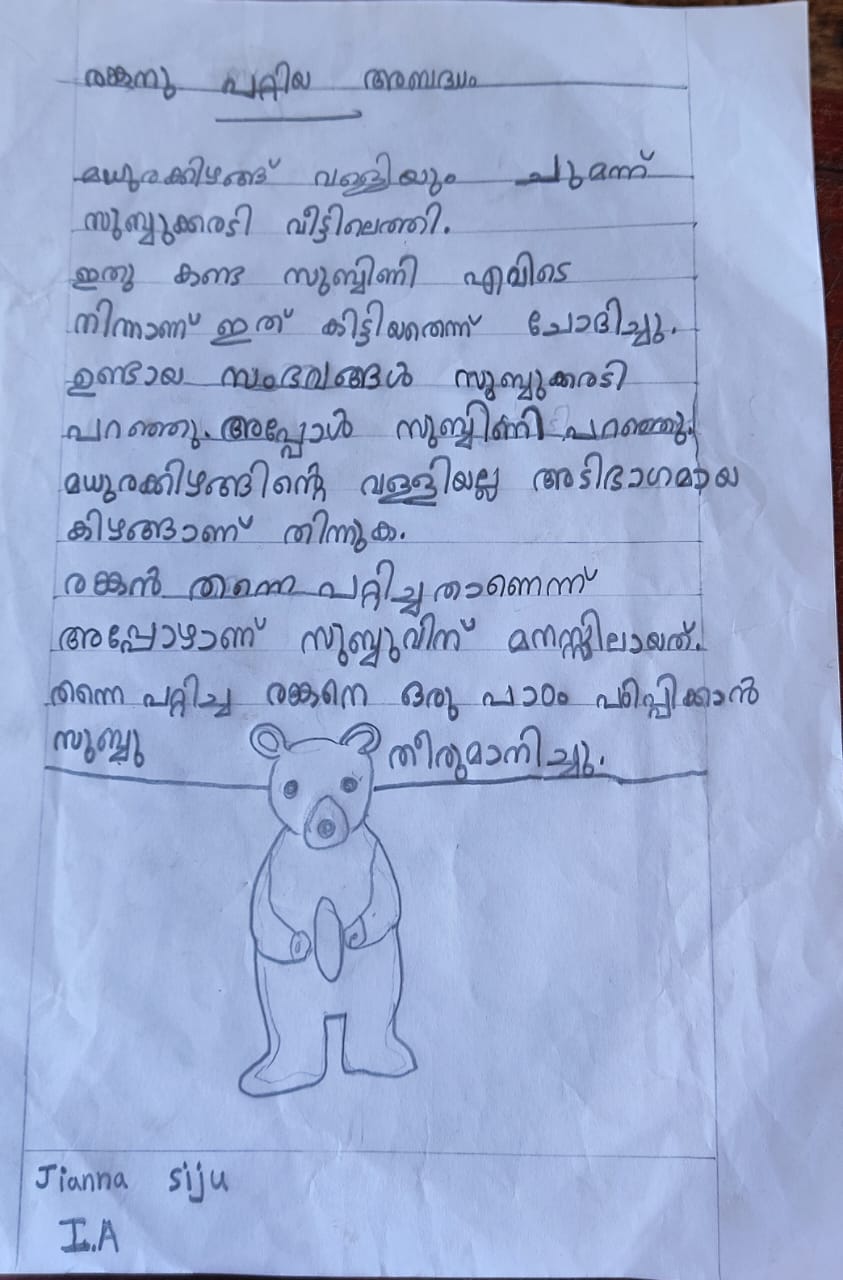 രങ്കനു പറ്റിയ അബദ്ധം
മധുരക്കിഴങ്ങ് വള്ളിയും ചുമന്ന്
സുബ്ബുക്കരടി വീട്ടിലെത്തി.
ഇതു കണ്ട സുബ്ബിണി എവിടെ
നിന്നാണ് ഇത് കിട്ടിയതെന്ന് ചോദിച്ചു.
ഉണ്ടായ സംഭവങ്ങൾ സുബ്ബുക്കരടി
പറഞ്ഞു. അപ്പോൾ സുബ്ബിണി പറഞ്ഞു.
മധുരക്കിഴങ്ങിന്റെ വള്ളിയല്ല അടിഭാഗമായ
കിഴങ്ങാണ് തിന്നുക.
രങ്കൻ തന്നെ പറ്റിച്ചതാണെന്ന്
അപ്പോഴാണ് സുബ്ബുവിന് മനസ്സിലായത്.
തന്നെ പറ്റിച്ച രങ്കനെ ഒരു പാഠം പഠിപ്പിക്കാൻ
സുബ്ബു തീരുമാനിച്ചു.
Jianna siju
I.A